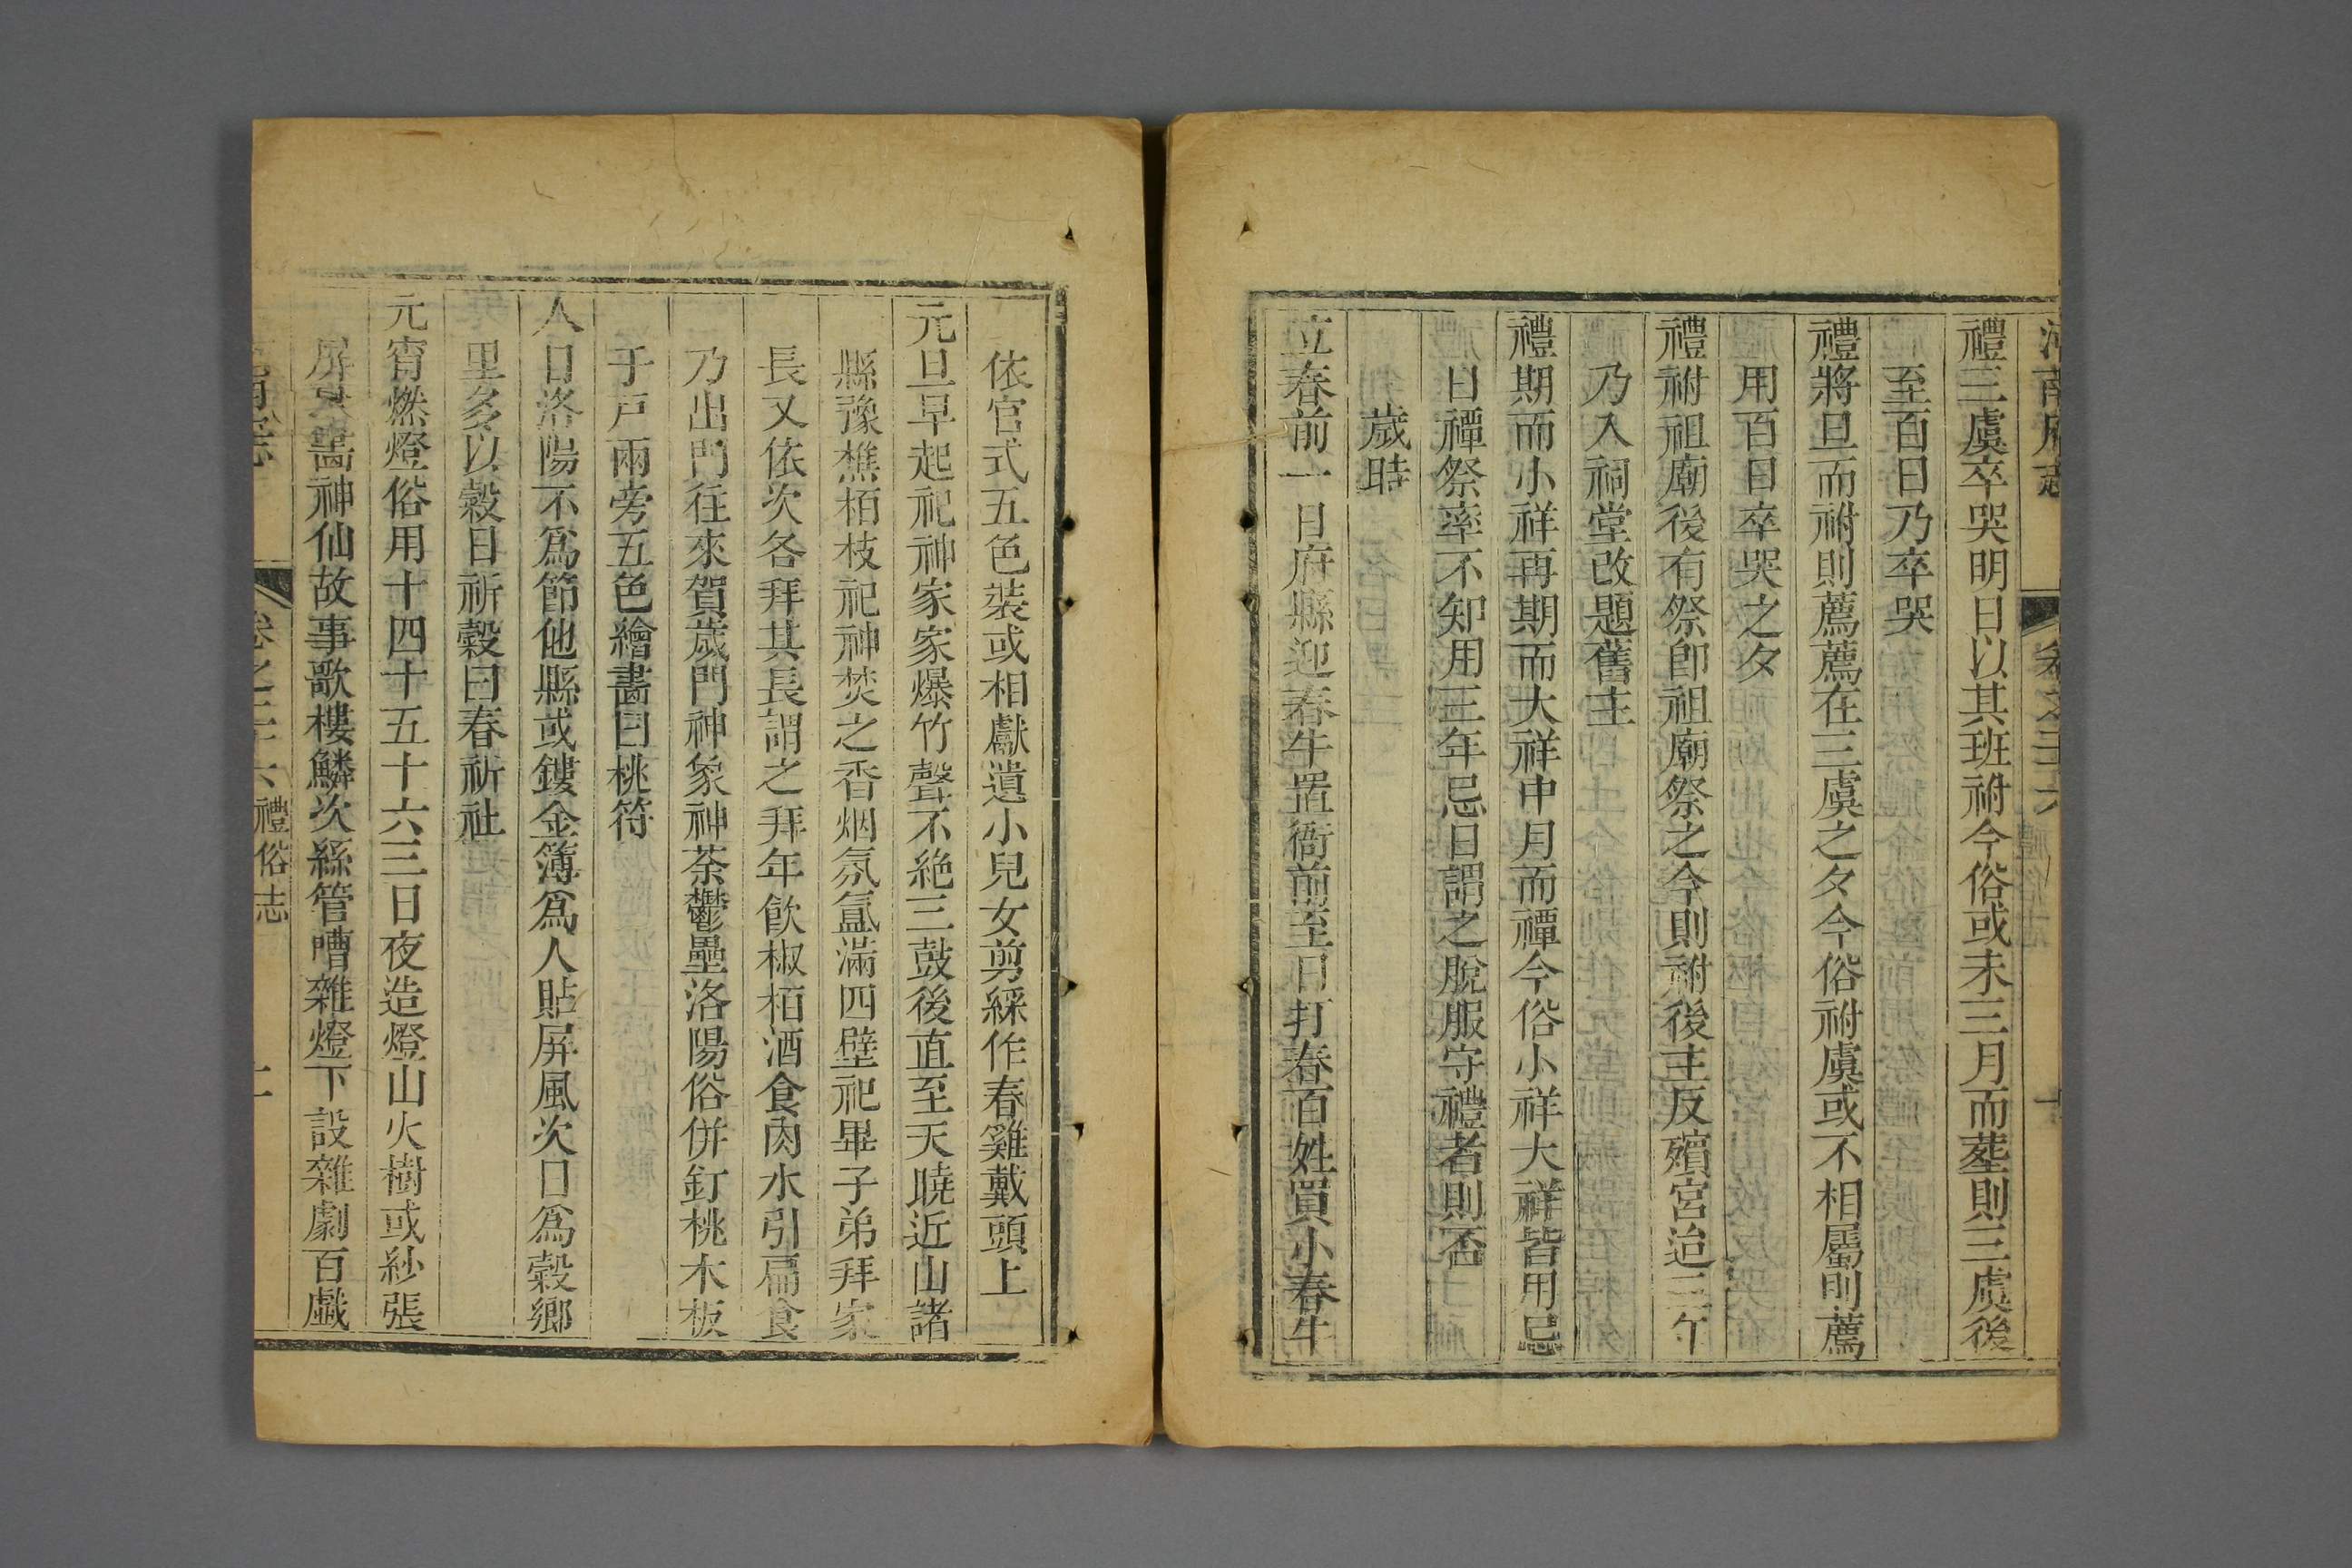 河南府志 卷之二十六 禮俗志 十
禮三虞卒哭明日以其班祔今俗或未三月而塟則三虞後
至百日乃卒哭
禮將旦而祔則薦薦在三虞之夕今俗祔虞或不相屬則薦
用百日卒哭之夕
禮祔祖廟後有祭卽祖廟祭之今則祔後主反殯宮迨三年
乃入祠堂改題舊主
禮期而小祥再期而大祥中月而禫今俗小祥大祥皆用忌
日禫祭率不知用三年忌日謂之脫服守禮者則否
歲時
立春前一日府縣迎春牛置衙前至日打春百姓買小春牛
依官式五色裝或相獻遺小兒女剪綵作春雞戴頭上
元旦早起祀神家家爆竹聲不絶三鼓後直至天曉近山諸
縣豫樵栢枝祀神焚之香烟氛氳滿四壁祀畢子弟拜家
長又依次各拜其長謂之拜年飮椒栢酒食肉水引扁食
乃出門往來賀歲門神象神荼鬱壘洛陽俗併釘桃木板
于戸兩旁五色繪畵曰桃符
人日洛陽不爲節他縣或鏤金簿爲人貼屏風次日爲穀鄉
里多以穀日祈穀曰春祈社
元宵燃燈俗用十四十五十六三日夜造燈山火樹或紗張
屏畵神仙故事歌樓鱗次絲管嘈雜燈下設雜劇百戯
南志 卷之二十六 禮俗志